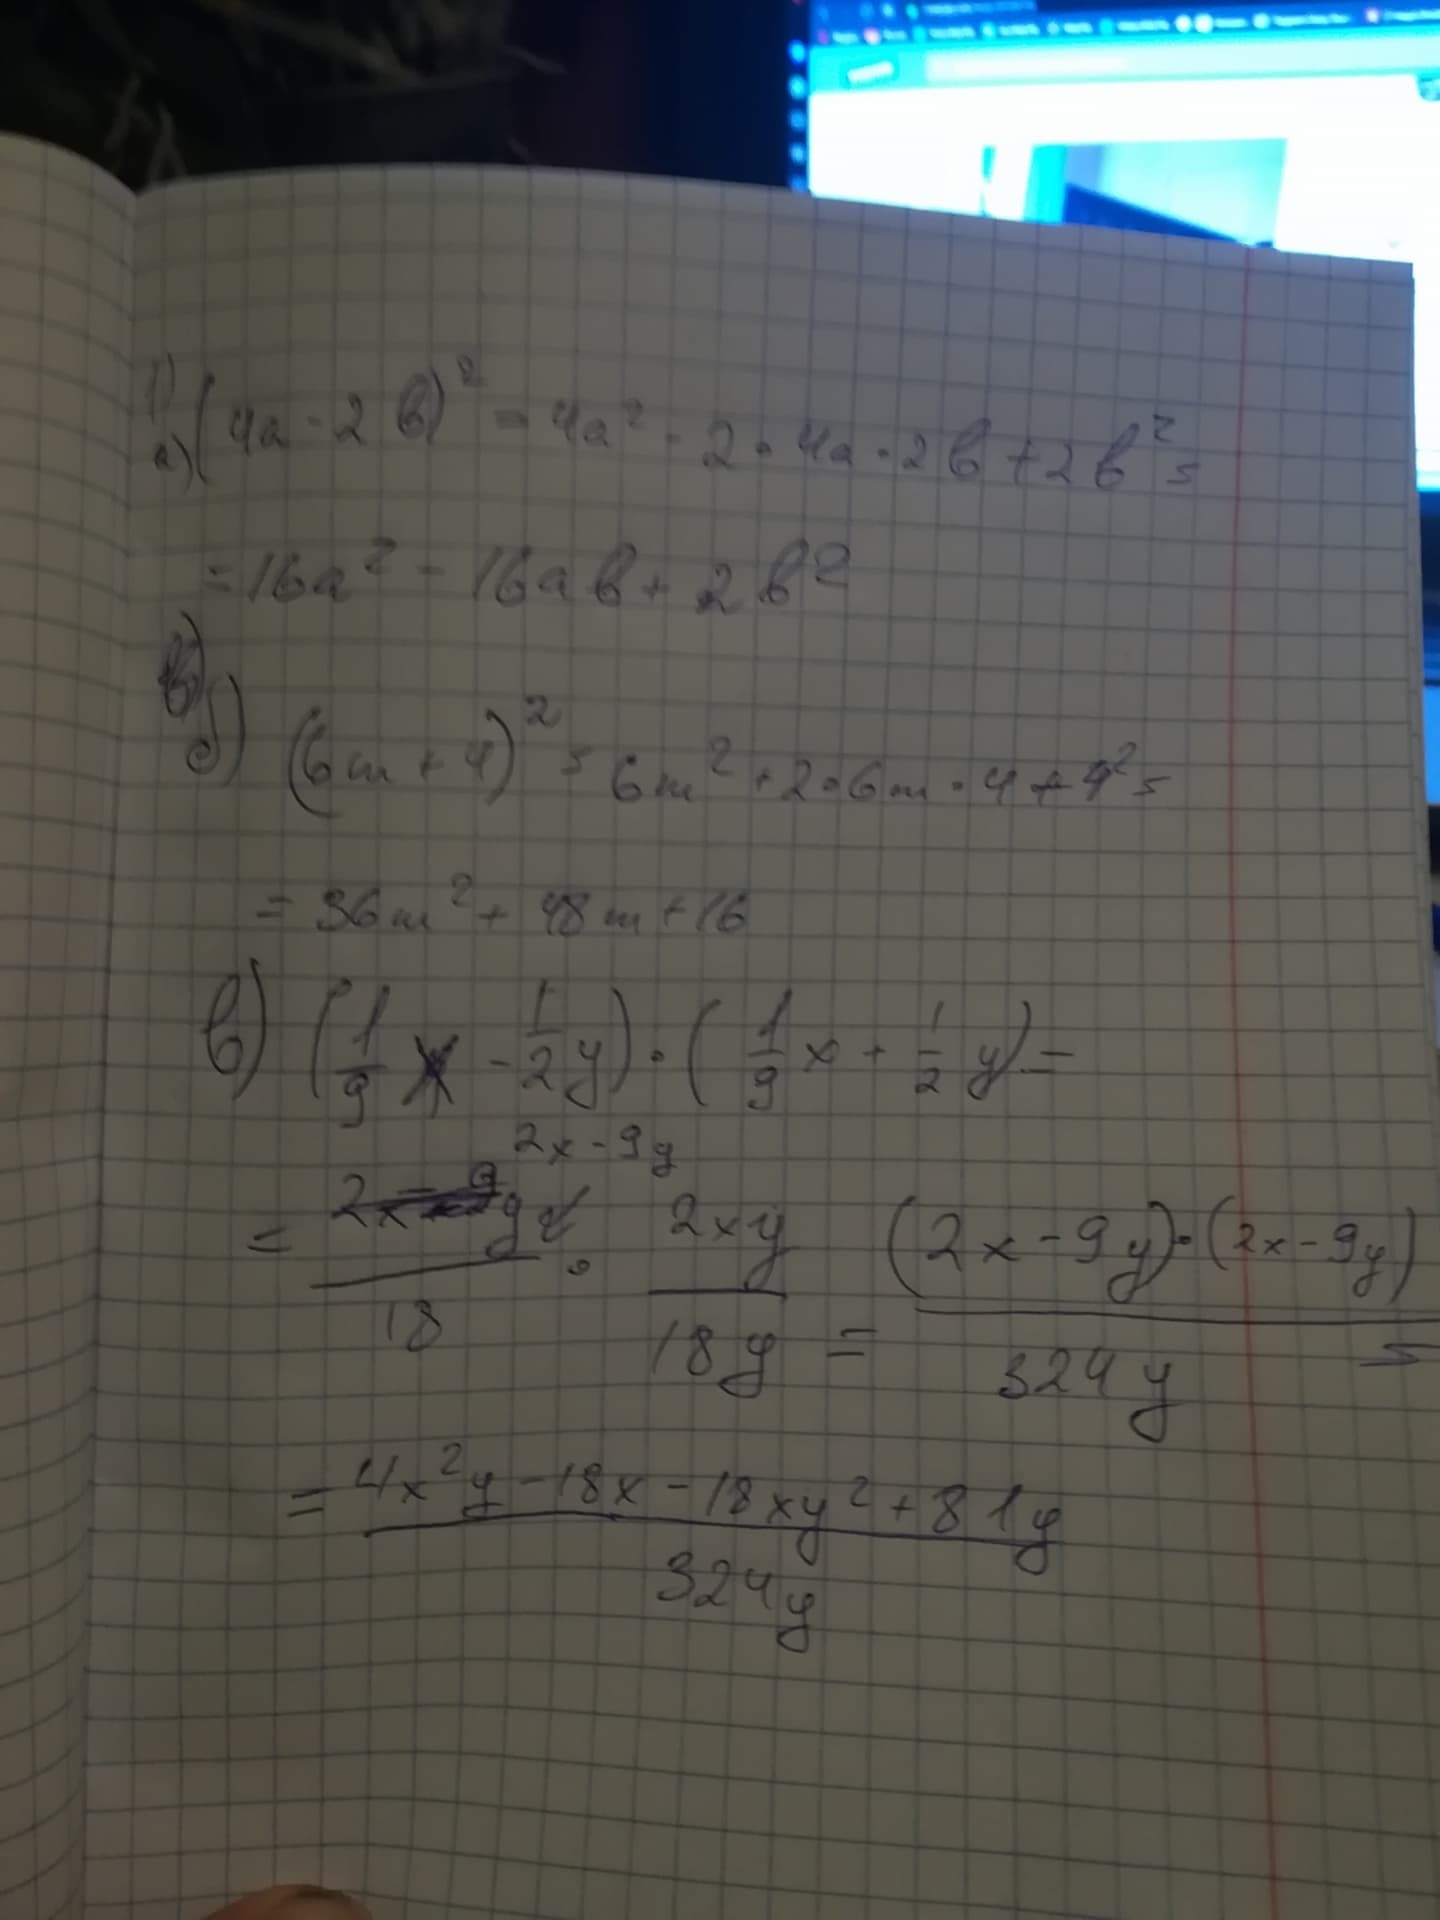 1)
а) (4a - 2b)² = 4a² - 2 · 4a · 2b + 2b² =
= 16a² - 16ab + 2b²
в)
б) (6m + 4)² = 6m² + 2 · 6m · 4 + 4² =
= 36m² + 48m + 16
в) (1/9 x - 1/2 y) · (1/9 x + 1/2 y) =
2x - 9y
= /18 · 2xy/18y = (2x - 9y) · (2x - 9y)/324y =
= 4x²y - 18x - 18xy² + 81y/324y